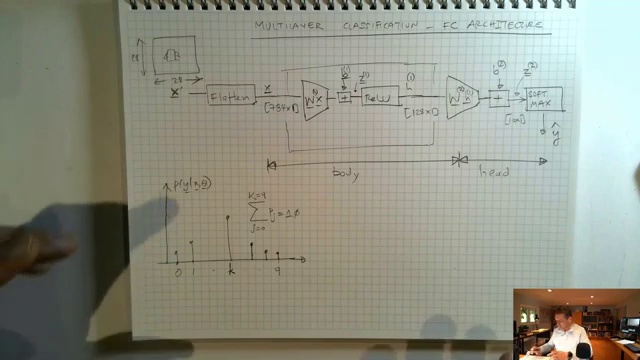 MULTILAYER CLASSIFICATION - FC ARCHITECTURE
28
28
x' Flatten x [784x1] W⁽¹⁾x + b⁽¹⁾ z⁽¹⁾ ReLU h⁽¹⁾ [128x1] W⁽²⁾h⁽¹⁾ + b⁽²⁾ z⁽²⁾ [10x1] SOFT MAX
ŷ
body head
p(y|x,θ)
K=9
∑ Pj = 1.0
j=0
0 1 . k 9